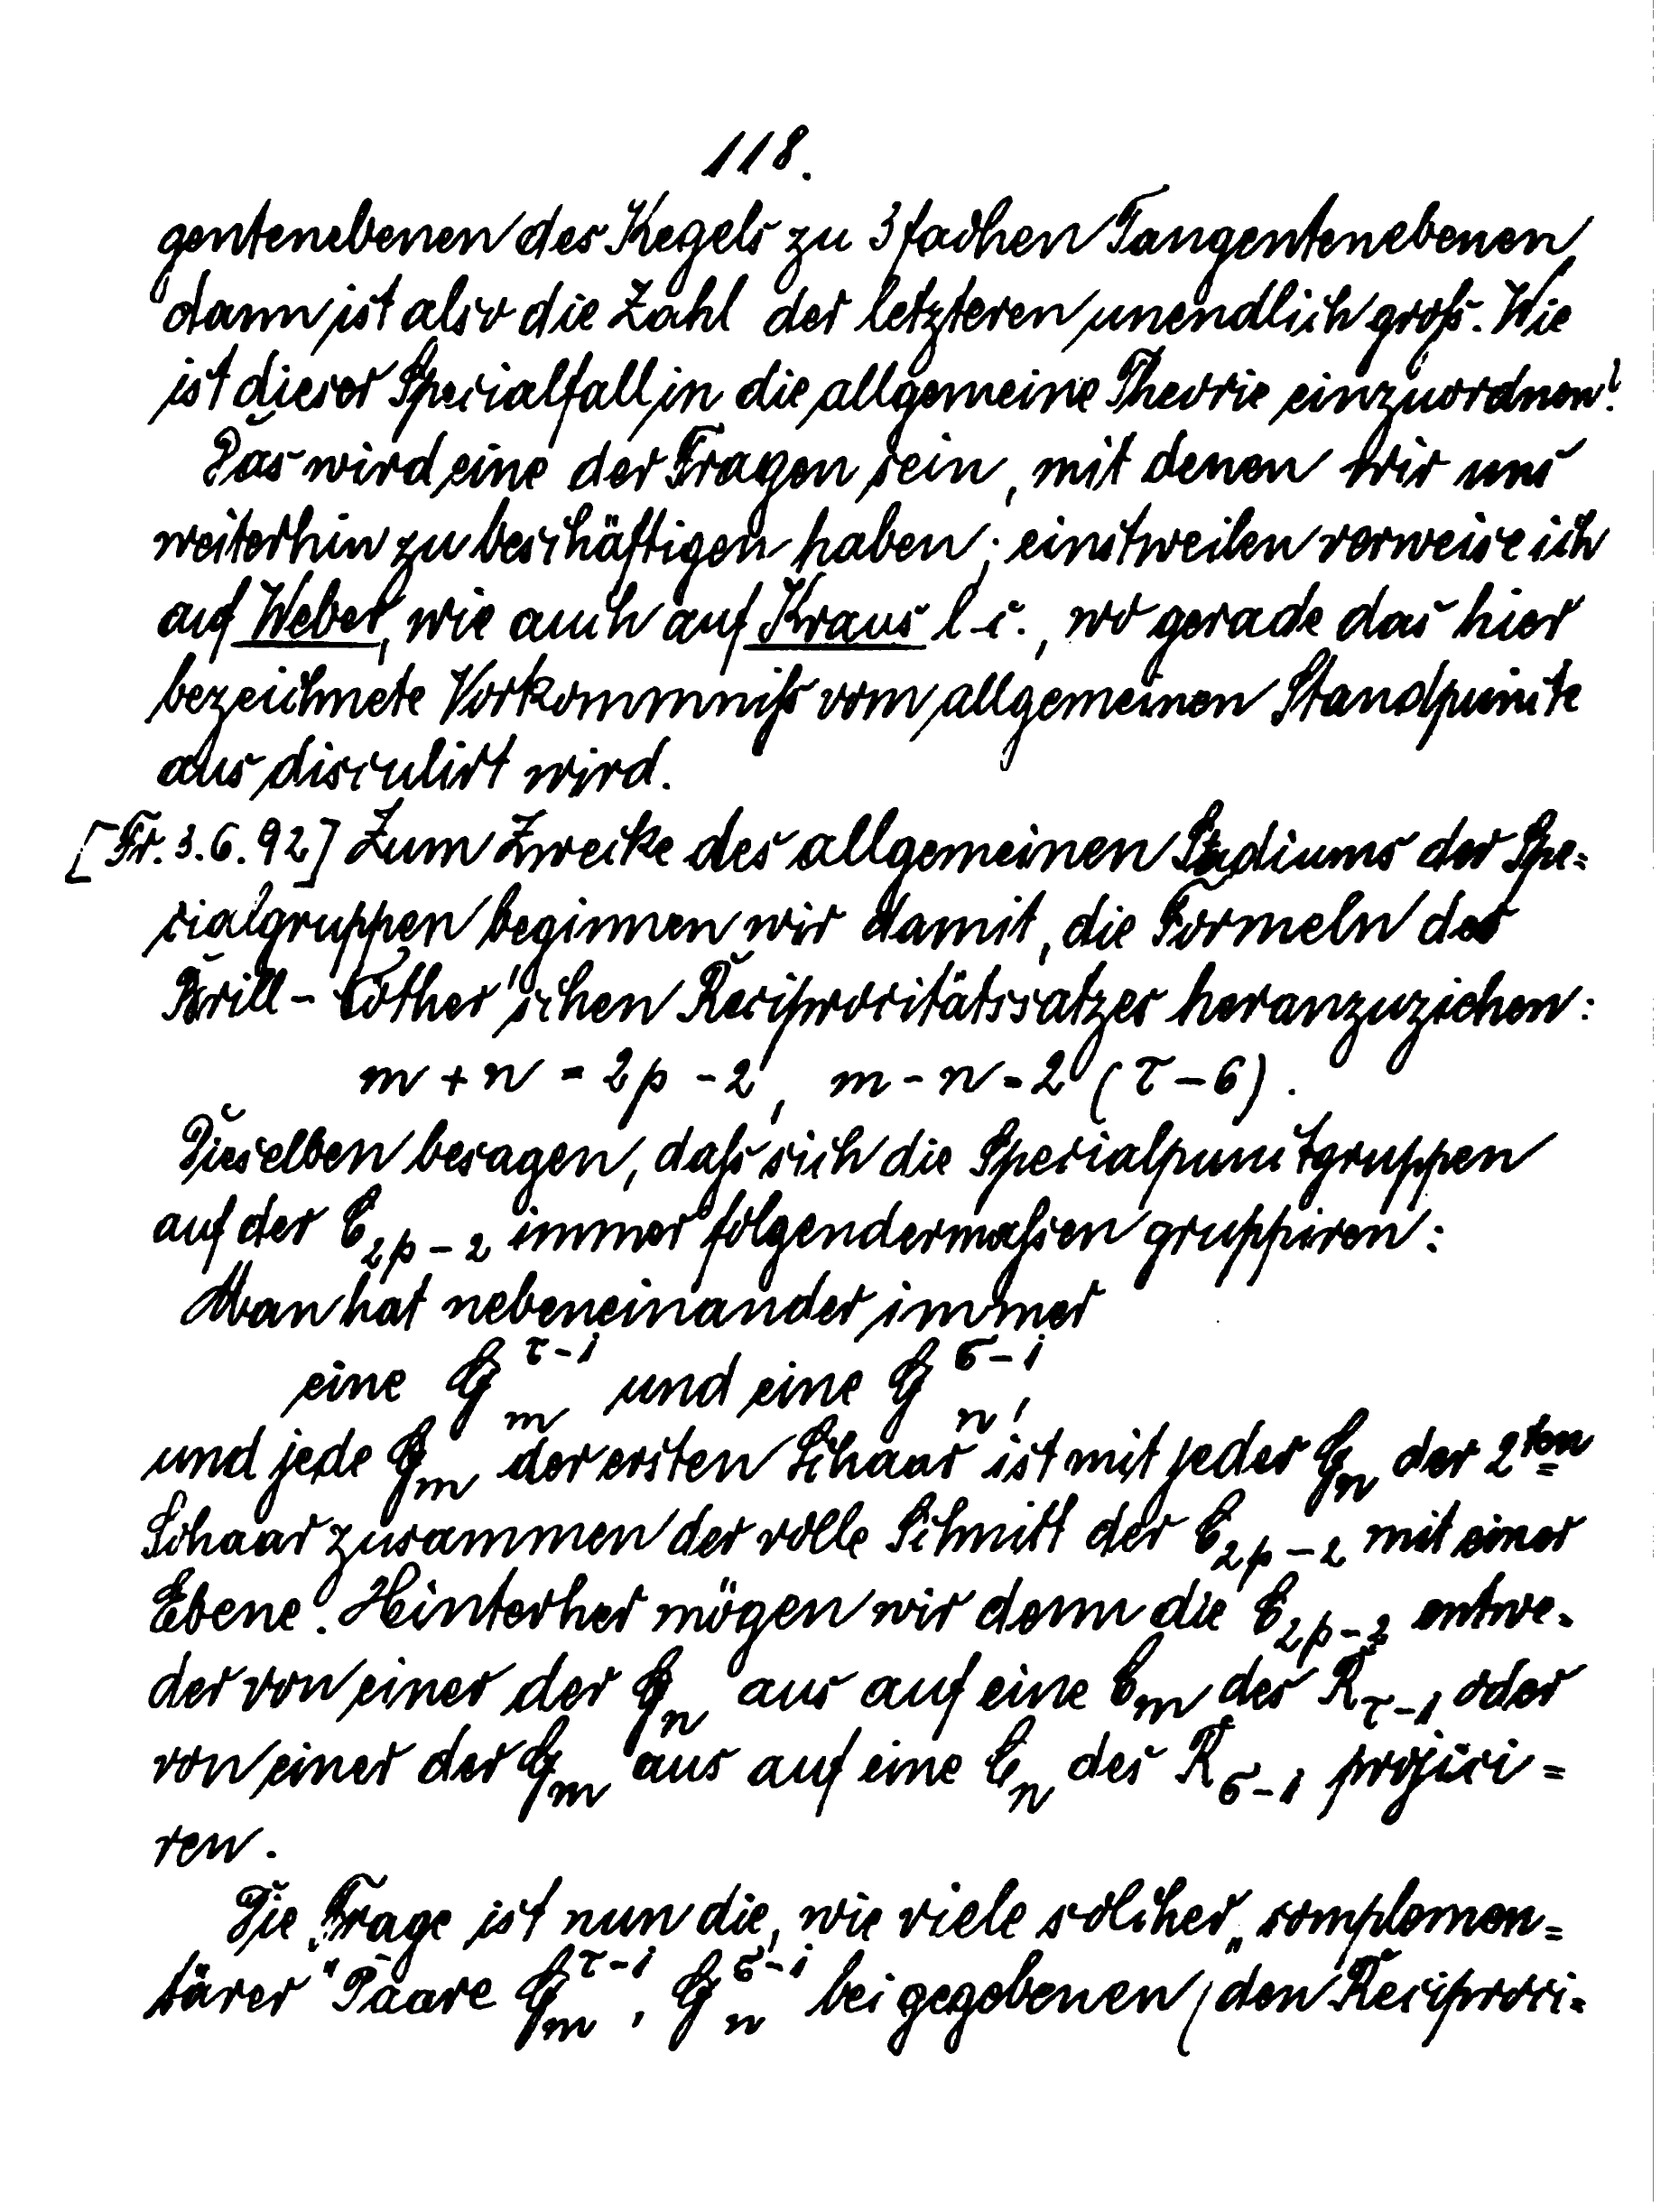 118.
gentenebenen des Kegels zu 3fachen Tangentenebenen,
dann ist also die Zahl der letzteren unendlich groß. Wie
ist dieser Specialfall in die allgemeine Theorie einzuordnen?
Das wird eine der Fragen sein, mit denen wir uns
weiterhin zu beschäftigen haben; einstweilen verweise ich
auf Weber, wie auch auf Kraus l. c., wo gerade das hier
bezeichnete Vorkommniß vom allgemeinen Standpuncte
aus discutirt wird.
[Fr. 3. 6. 92] Zum Zwecke des allgemeinen Studiums der Spe=
cialgruppen beginnen wir damit, die Formeln des
Brill-Nöther'schen Reciprocitätssatzes heranzuziehen:
m + n = 2p - 2, m - n = 2 (τ - σ).
Dieselben besagen, daß sich die Specialpunctgruppen
auf der C_{2p-2} immer folgendermaßen gruppiren:
Man hat nebeneinander immer
eine G_m^{τ-1} und eine G_n^{σ-1},
und jede G_m der ersten Schaar ist mit jeder G_n der 2ten
Schaar zusammen der volle Schnitt der C_{2p-2} mit einer
Ebene. Hinterher mögen wir dann die C_{2p-2} entwe=
der von einer der G_n aus auf eine C_m des R_{τ-1} oder
von einer der G_m aus auf eine C_n des R_{σ-1} projici=
ren.
Die Frage ist nun die, wie viele solcher „complemen=
tärer" Paare G_m^{τ-1}, G_n^{σ-1} bei gegebenen (den Reciproci=